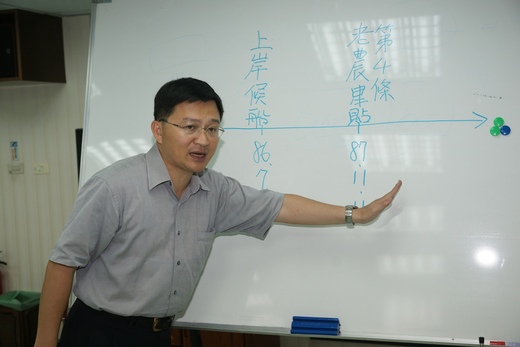 第4條
老農津貼
87.11.
上岸候船
86.7